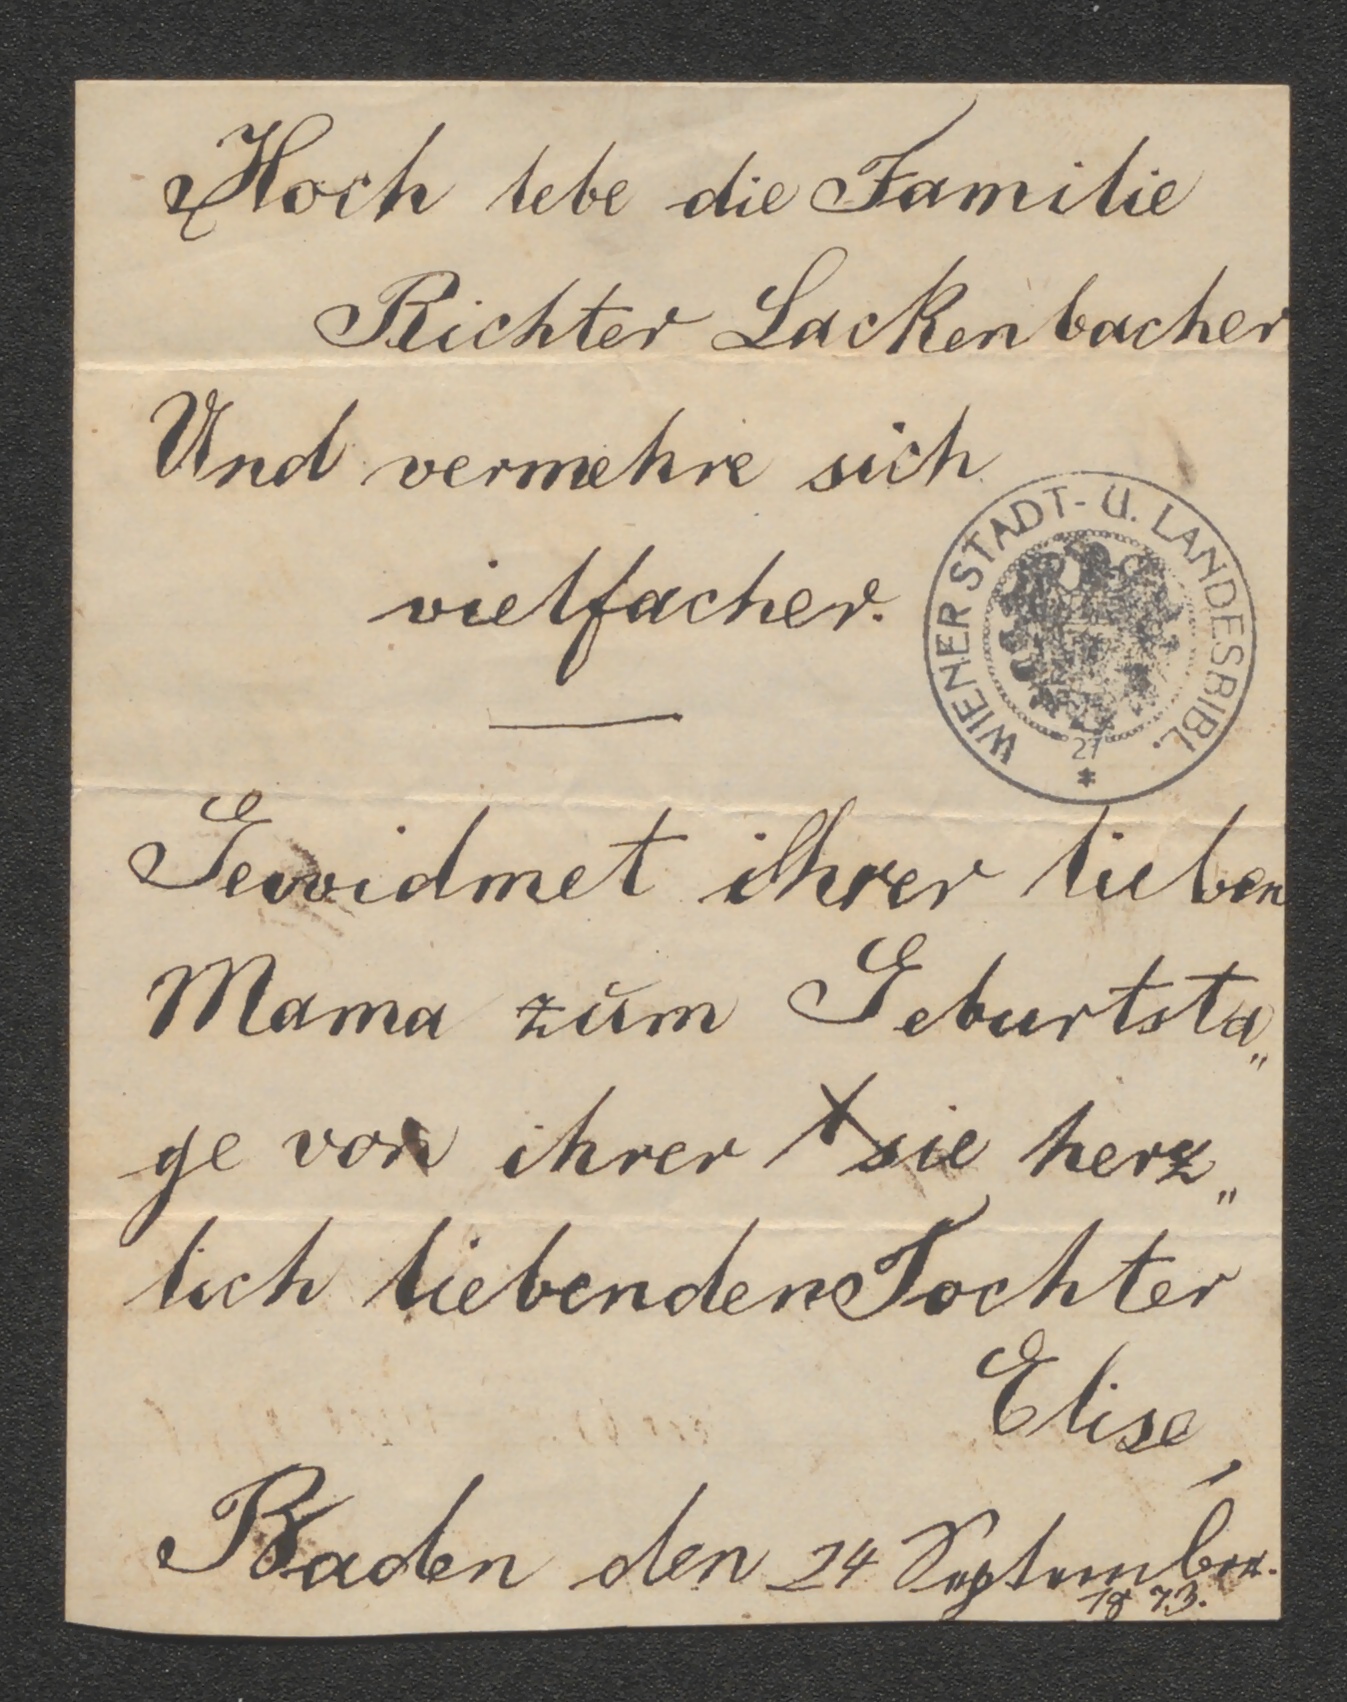 Hoch lebe die Familie
Richter Lackenbacher
Und vermehre sich
vielfacher.
WIENER STADT- U. LANDESBIBL.
27
*
Gewidmet ihrer lieben
Mama zum Geburtsta„
ge von ihrer sie herz„
lich liebenden Tochter
Elise,
Baden den 24 September.
1873.